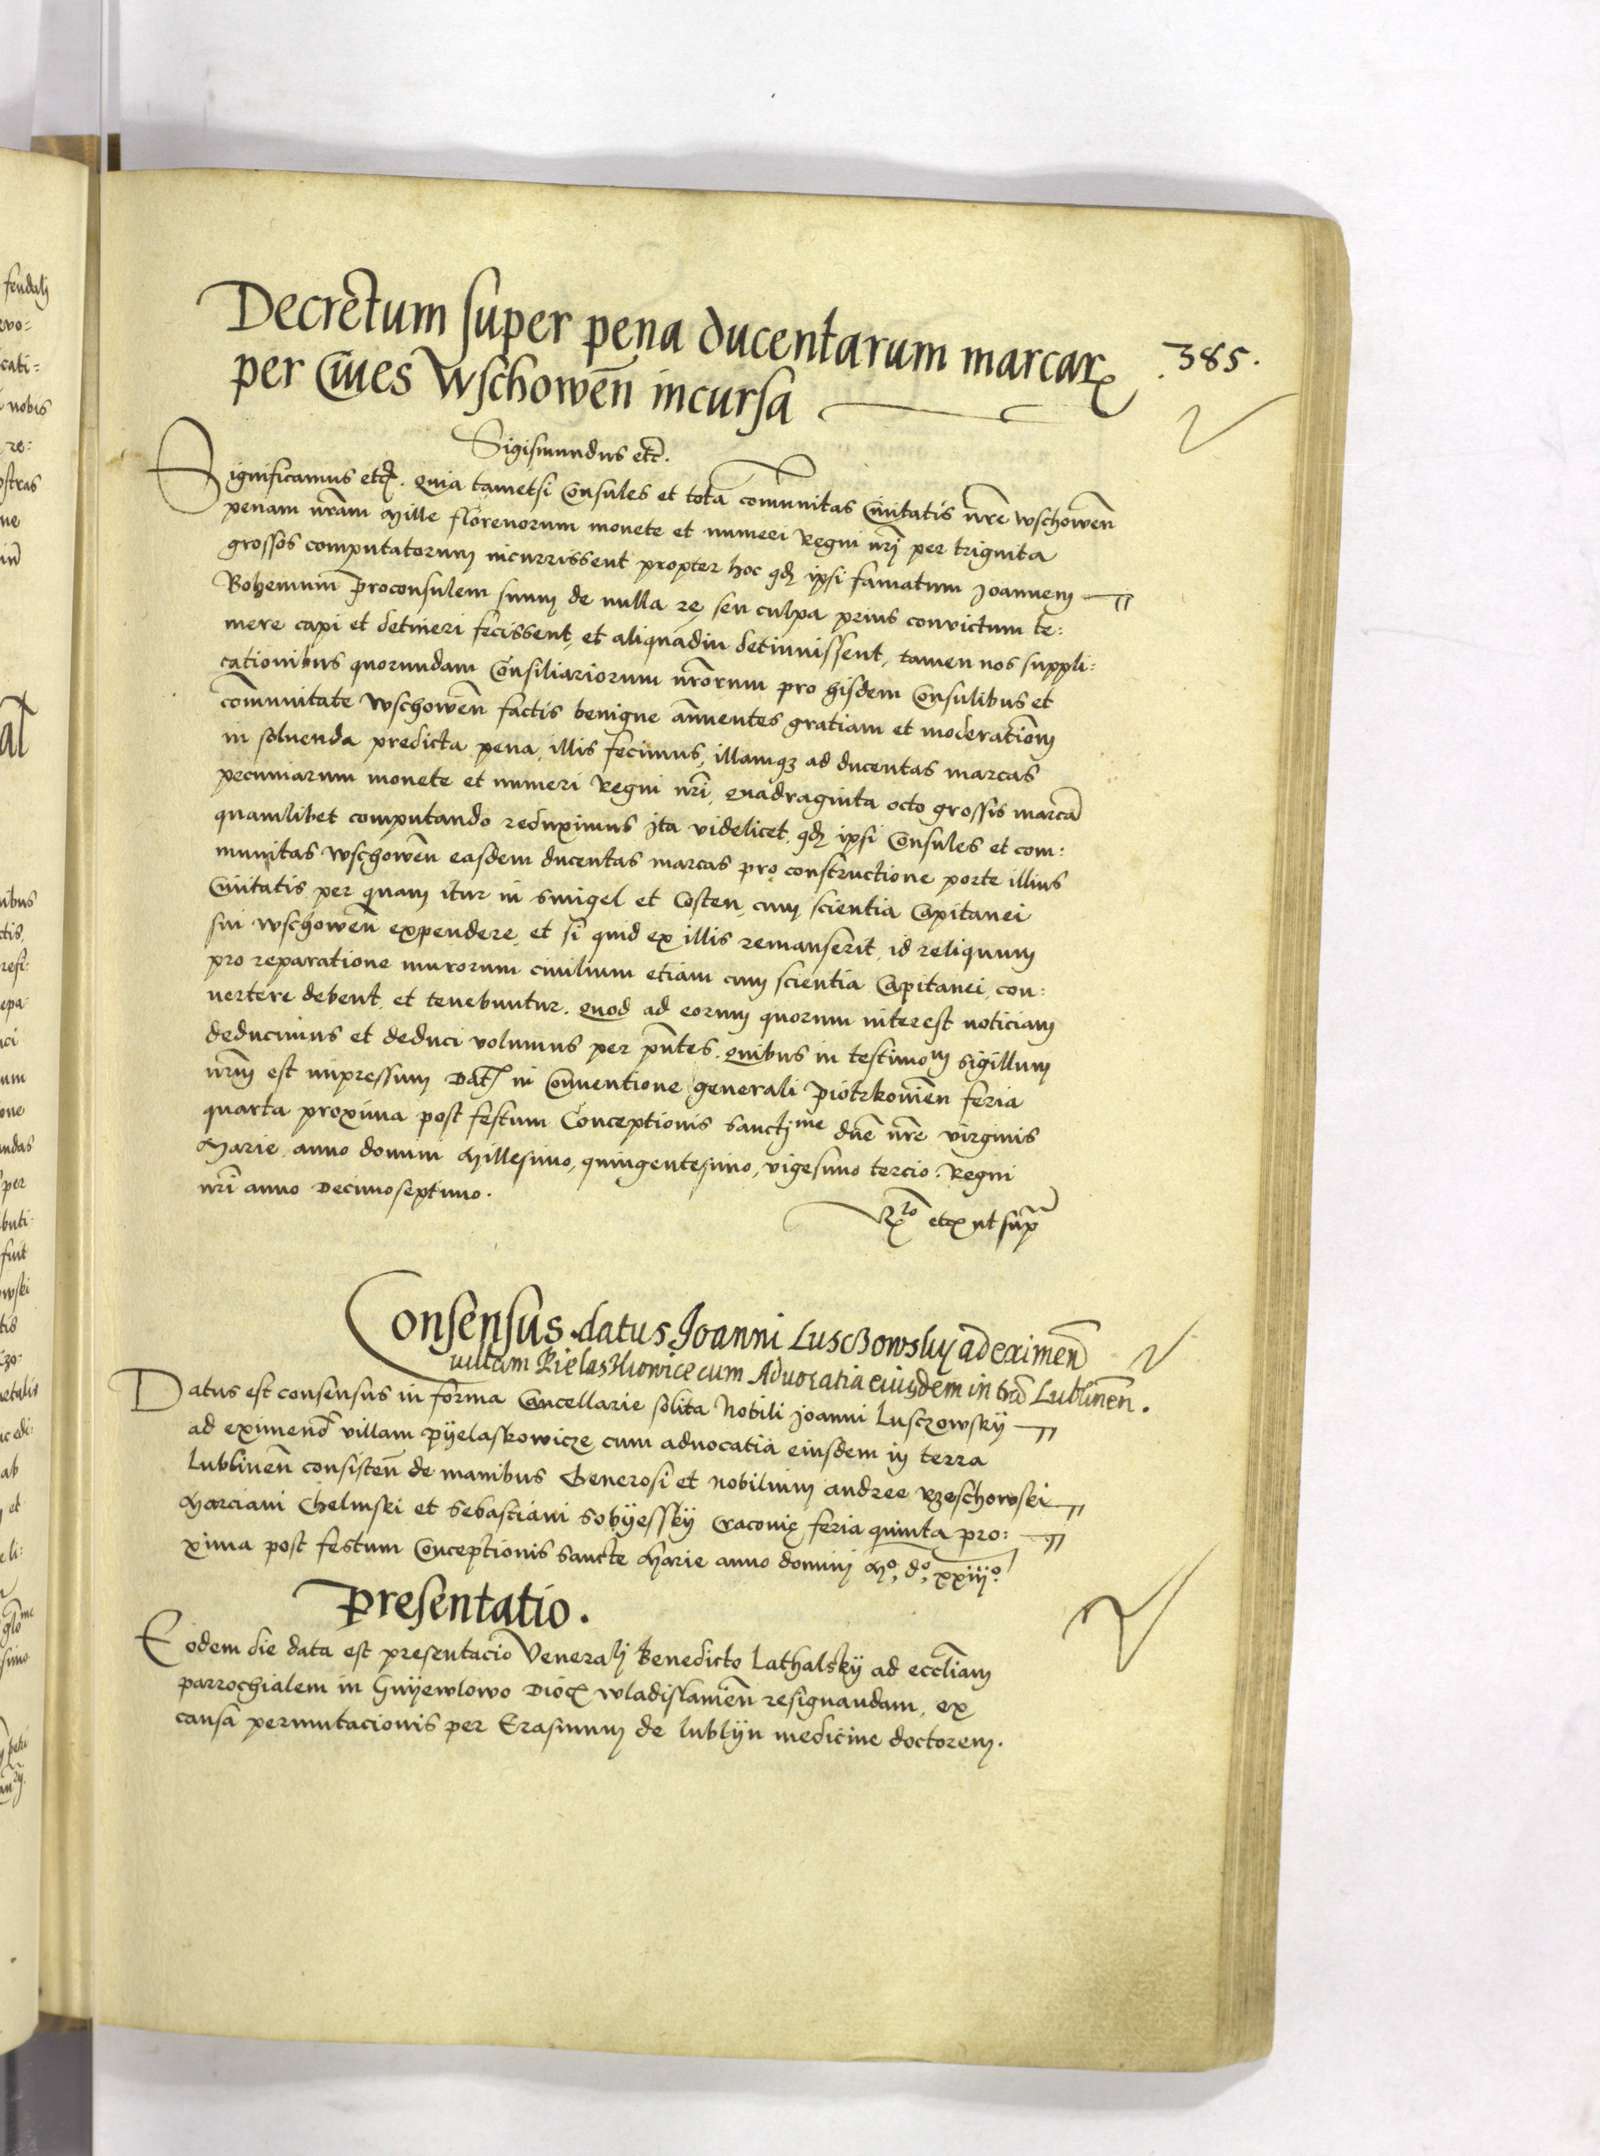 Decretum super pena ducentarum marcarꝝ
.385.
per Ciues Wschowen̄ incursa
Sigismundus etc̄.
Significamus etcꝫ. Quia tametsi Consules et tota com̄unitas Ciuitatis nr̄e Wschowen̄
penam nr̄am Mille florenorum monete et numeri Regni nr̄i per triginta
grossos computatorum incurrissent propter hoc qd̄ ipsi famatum Joannem
Bohemum Proconsulem suum de nulla re seu culpa prius convictum te:
mere capi et detineri fecissent, et aliquādiu detinuissent, tamen nos suppli:
cationibus quorundam Consiliariorum nr̄orum pro hisdem Consulibus et
com̄unitate Wschowen̄ factis benigne an̄uentes gratiam et moderation̄em
in soluenda predicta pena illis fecimus, illamqꝫ ad ducentas marcas
pecuniarum monete et numeri Regni nr̄i, quadraginta octo grossis marcā
quamlibet computando reduximus Ita videlicet, qd̄ ipsi Consules et com:
munitas Wschowen̄ easdem ducentas marcas pro constructione porte illius
Ciuitatis per quam itur in Smigel et Costen, cum scientia Capitanei
sui Wschowen̄ expendere, et si quid ex illis remanserit, id reliquum
pro reparatione murorum ciuilium etiam cum scientia Capitanei, con:
uertere debent, et tenebuntur. Quod ad eorum quorum interest noticiam
deducimus et deduci volumus per pn̄tes. Quibus in testimom sigillum
nr̄m est impressum Datꝭ in Conuentione generali Piotrkowien̄ feria
quarta proxima post festum Conceptionis Sanctime dn̄e nr̄e virginis
Marie, anno domini Millesimo, quingentesimo, vigesimo tercio. Regni
nr̄i anno Decimoseptimo.
Rlo etcꝫ ut sup̄
Consensus datus Joanni Lusczowsky ad eximen̄d
uillam Pielaskowice cum Aduocatia eiusdem in trā Lublinen̄.
Datus est consensus in forma Cancellarie solita Nobili Joanni Lusczowskÿ
ad eximend̄ villam Pÿelaskowicze cum aduocatia eiusdem in terra
Lublinen̄ consisten̄ de manibus Generosi et nobilium Andree Rzeschowski
Marciani Chelmski et Sebastiani Sobÿesskÿ Cracovię feria quinta pro:
xima post festum Conceptionis Sancte Marie anno domini Mo, do, xxiijo
Presentatio.
Eodem die data est presentacio Venerali Benedicto Lathalskÿ ad eccl̄iam
parrochialem in Gnÿewkowo Diocꝭ Wladislauien̄ resignandam, ex
causa permutacionis per Erasmum de Lublÿn medicine doctorem.